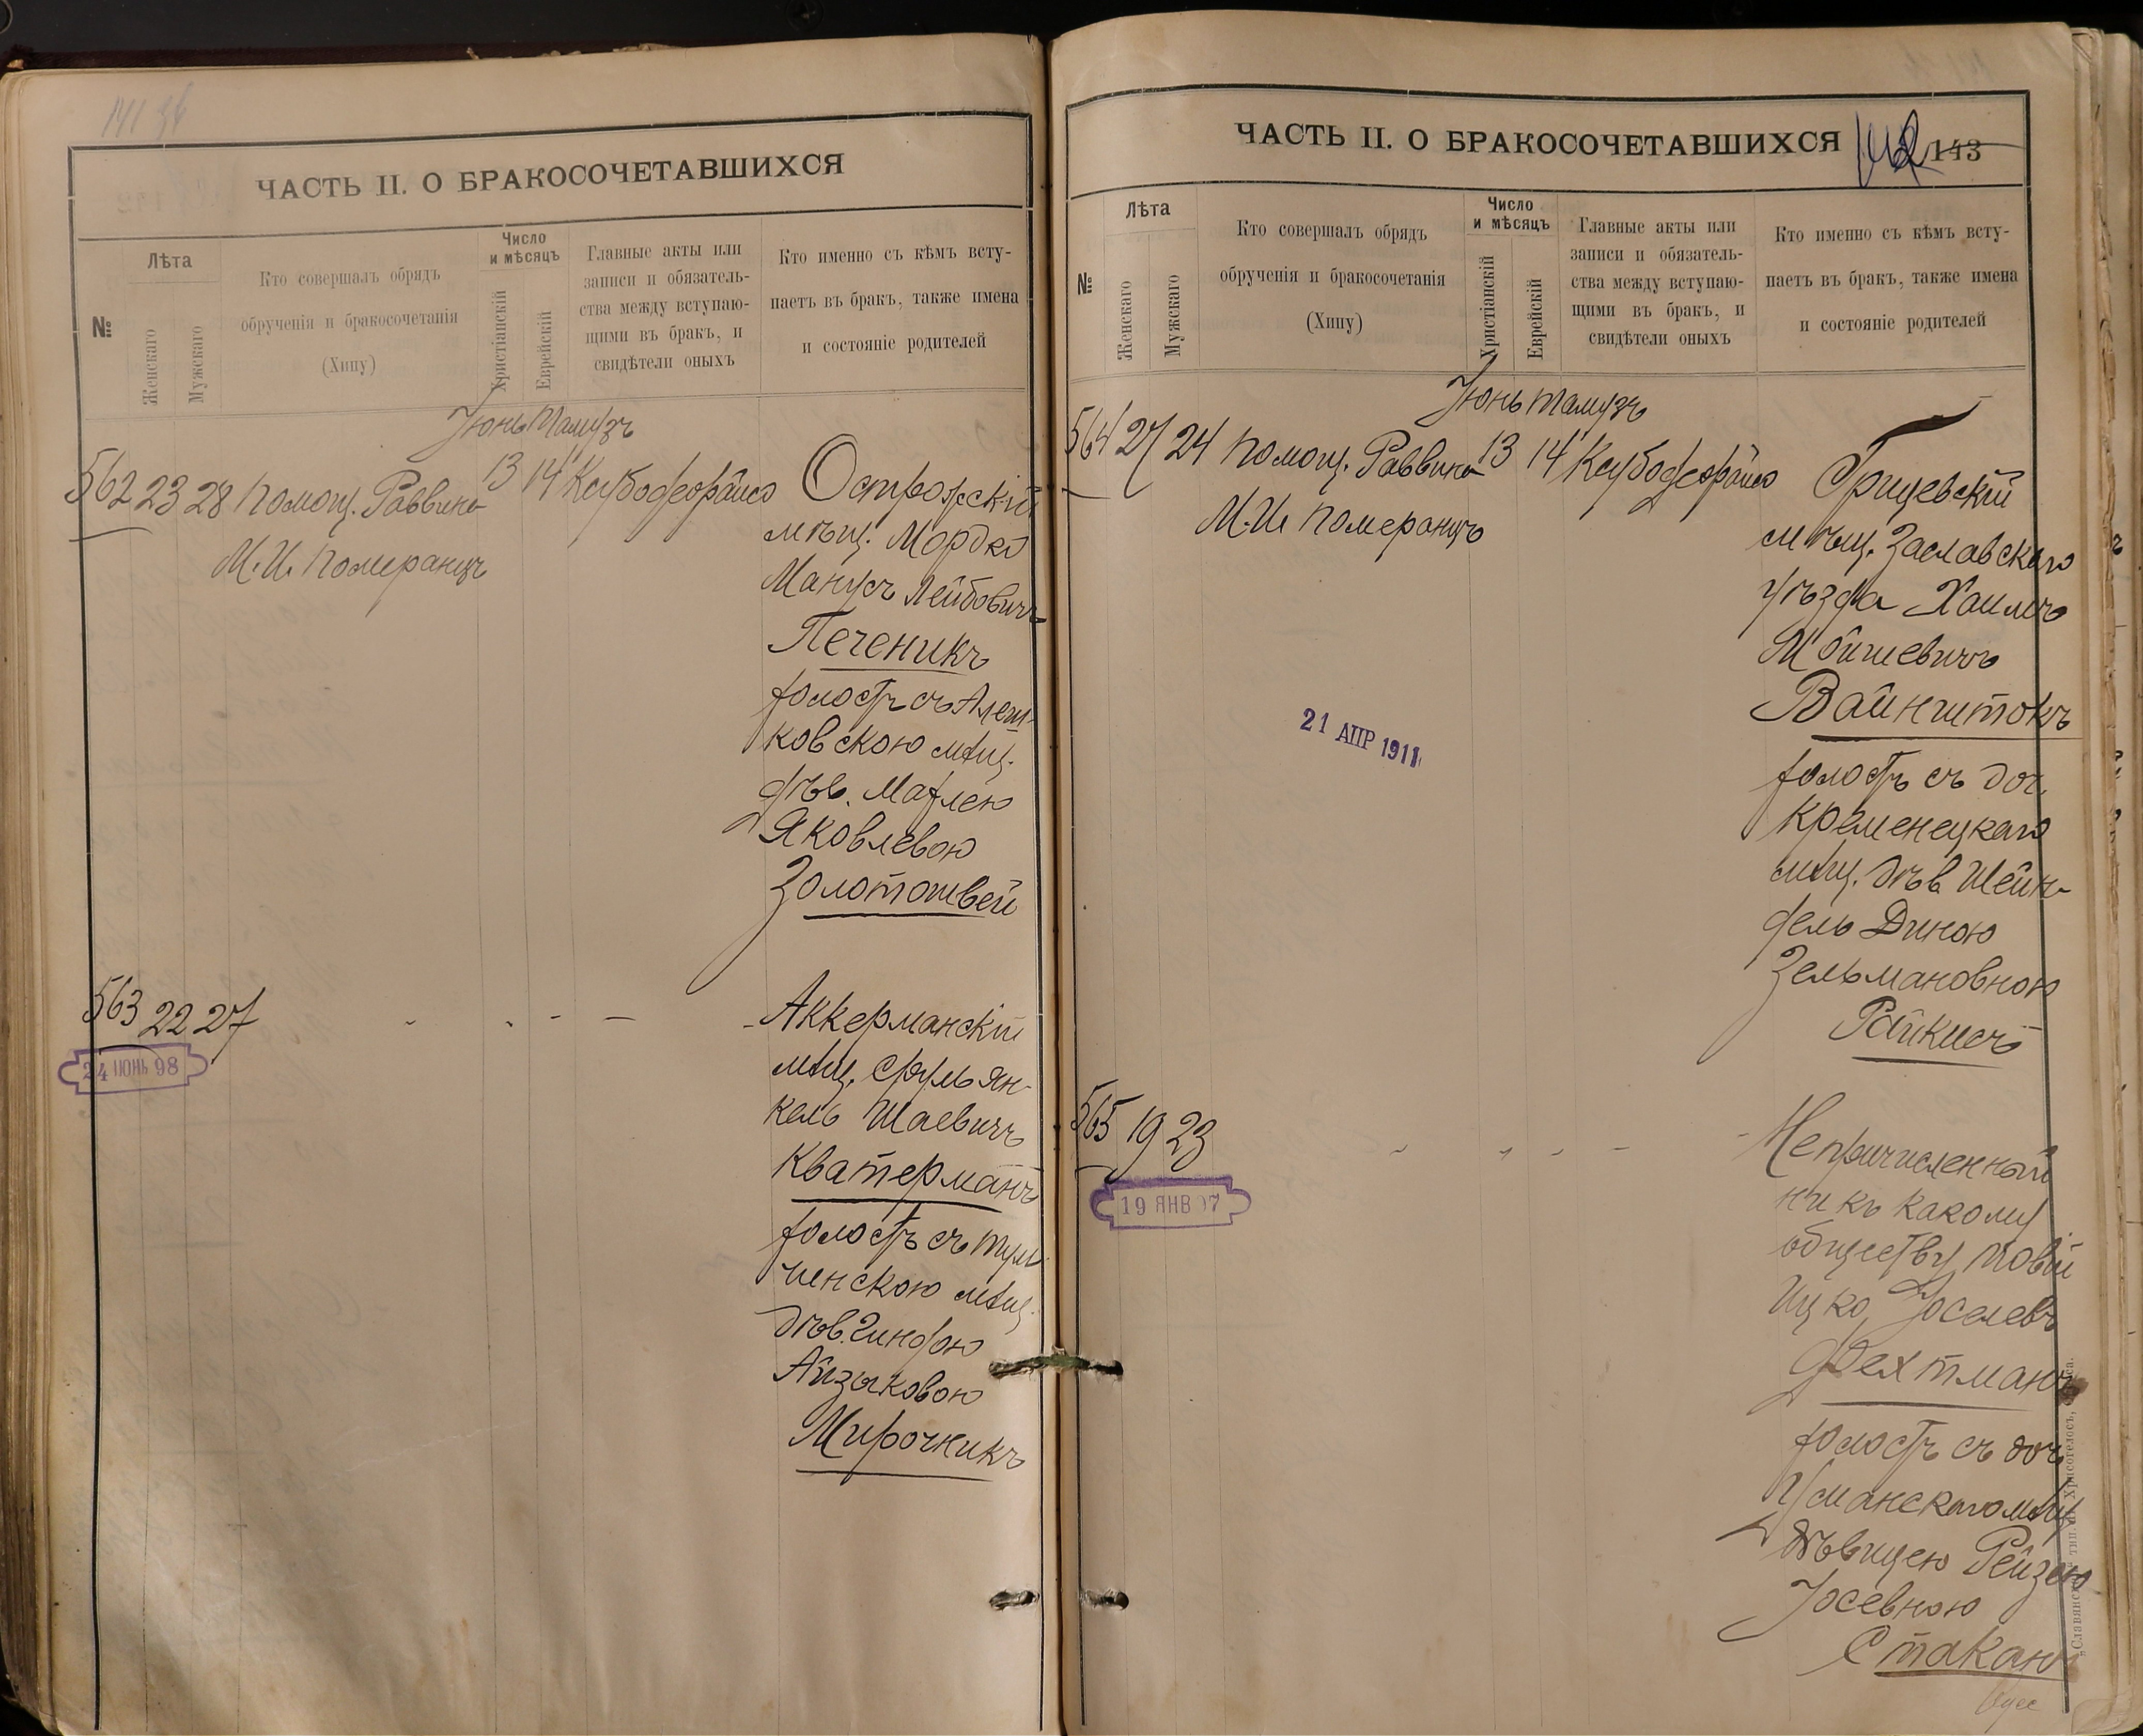 ЧАСТЬ II. О БРАКОСОЧЕТАВШИХСЯ
№
Лѣта
Женскаго
Мужскаго
Кто совершалъ обрядъ
обрученія и бракосочетанія
(Хипу)
Число
и мѣсяцъ
Христіанскій
Еврейскій
Главные акты или
записи и обязатель-
ства между вступаю-
щими въ бракъ, и
свидѣтели оныхъ
Кто именно съ кѣмъ всту-
паетъ въ бракъ, также имена
и состояніе родителей
Іюнь Тамузъ
562 23 28 Помощ. Раввина 13 14 Ксубодеорайсо
М. И. Померанцъ
Острожскій
мѣщ. Мордко
Манусъ Лейбовичъ
Печеникъ
холостъ съ Алеш-
ковскою мѣщ.
дѣв. Махлею
Яковлевою
Золотошвей
563 22 27 - - - -
24 ІЮНЬ 98
Аккерманскій
мѣщ. Сруль Ян-
кель Шаевичъ
Кватерманъ
холостъ съ Туль-
чинскою мѣщ.
дѣв. Гиндою
Айзыковою
Мирочникъ
ЧАСТЬ II. О БРАКОСОЧЕТАВШИХСЯ
142 143
№
Лѣта
Женскаго
Мужскаго
Кто совершалъ обрядъ
обрученія и бракосочетанія
(Хипу)
Число
и мѣсяцъ
Христіанскій
Еврейскій
Главные акты или
записи и обязатель-
ства между вступаю-
щими въ бракъ, и
свидѣтели оныхъ
Кто именно съ кѣмъ всту-
паетъ въ бракъ, также имена
и состояніе родителей
Іюнь Тамузъ
564 27 24 Помощ. Раввина 13 14 Ксубодеорайсо
М. И. Померанцъ
21 АПР 1911
Грицевскій
мѣщ. Заславскаго
уѣзда Хаимъ
Мойшевичъ
Вайнштокъ
холостъ съ доч.
Кременецкаго
мѣщ. дѣв Шейн-
дель Диною
Зельмановною
Райкисъ
565 19 23 - - - -
19 ЯНВ 07
Непричисленный
ни къ какому
обществу Товій
Ицко Іоселевъ
Фехтманъ
холостъ съ доч
Уманскаго мѣщ
дѣвицею Рейзею
Іосевною
Стакан
„Славянская“ тип. Н. Хрисогелосъ, Одесса.